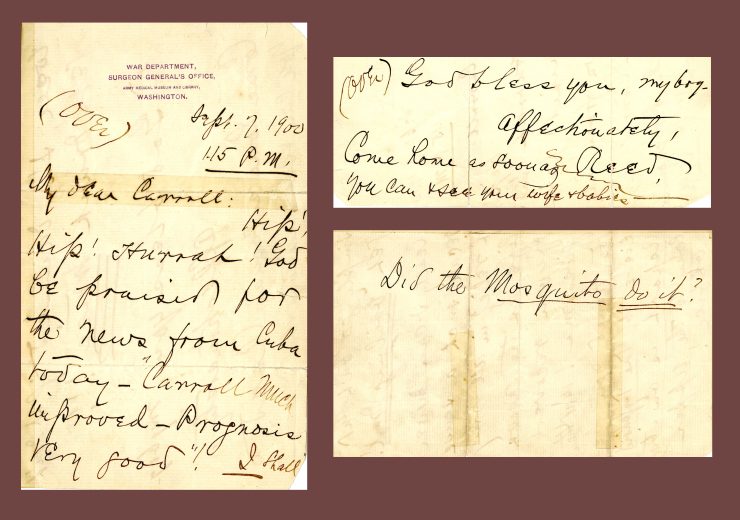 WAR DEPARTMENT,
SURGEON GENERAL'S OFFICE,
ARMY MEDICAL MUSEUM AND LIBRARY,
WASHINGTON.
(Over)
Sept. 7, 1900
1.15 P.M.
My dear Carroll:
Hip!
Hip! Hurrah! God
be praised for
the news from Cuba
today – "Carroll much
improved – Prognosis
very good"! I shall
(Over)
God bless you, my boy –
Affectionately,
Come home as soon as Reed,
you can & see your wife & babies –
Did the Mosquito do it?